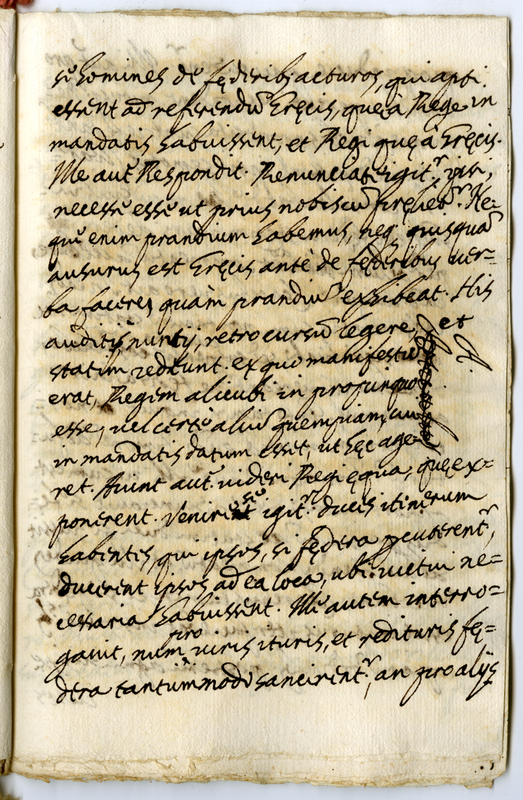 se homines de fęderib; acturos, qui apti
essent ad referendū Gręcis, quę à Rege in
mandatis habuissent, et Regi quę à Gręcis.
Ille aut̄ Respondit. Renunciate igit.r ipsi,
necesse esse ut prius nobiscū pręliet.r Ne-
qȝ enim prandium habemus, neqȝ quisquā
ausurus est Gręcis antè de fęderibus uer-
ba facere, quàm prandiū exhibeat. His
auditis nuntij, retro cursū legere, et
statim redeunt. ex quo manifestū
erat, Regem alicubi in propinquo
esse, uel certè aliū quempiam, cui
in mandatis datum esset, ut hęc age-
ret. Aiunt aut̄. uideri Regi ęqua, quę ex-
ponerent. Venire se igit.r duces itinerum
habentes, qui ipsos, si fędera feuterent.r,
ducerent ipsos, ad ea loca, ubi uictui ne-
cessaria habuissent. Ille autem interro-
gauit, num pro uiris ituris, et redituris fę-
dera tantùmmodo sancirent.r, an pro alijs